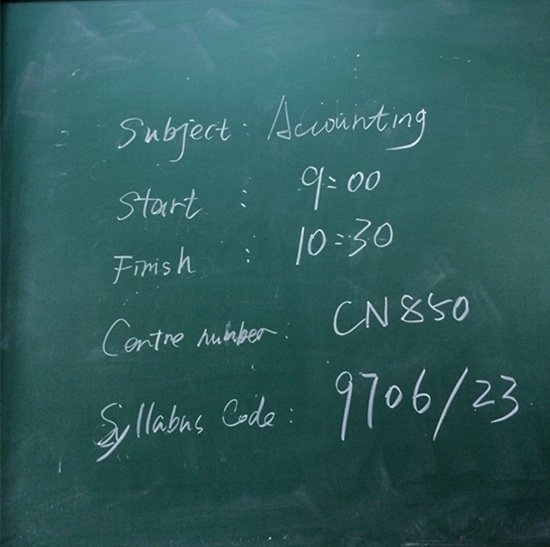 Subject: Accounting
Start : 9:00
Finish : 10:30
Centre number: CN850
Syllabus Code: 9706/23